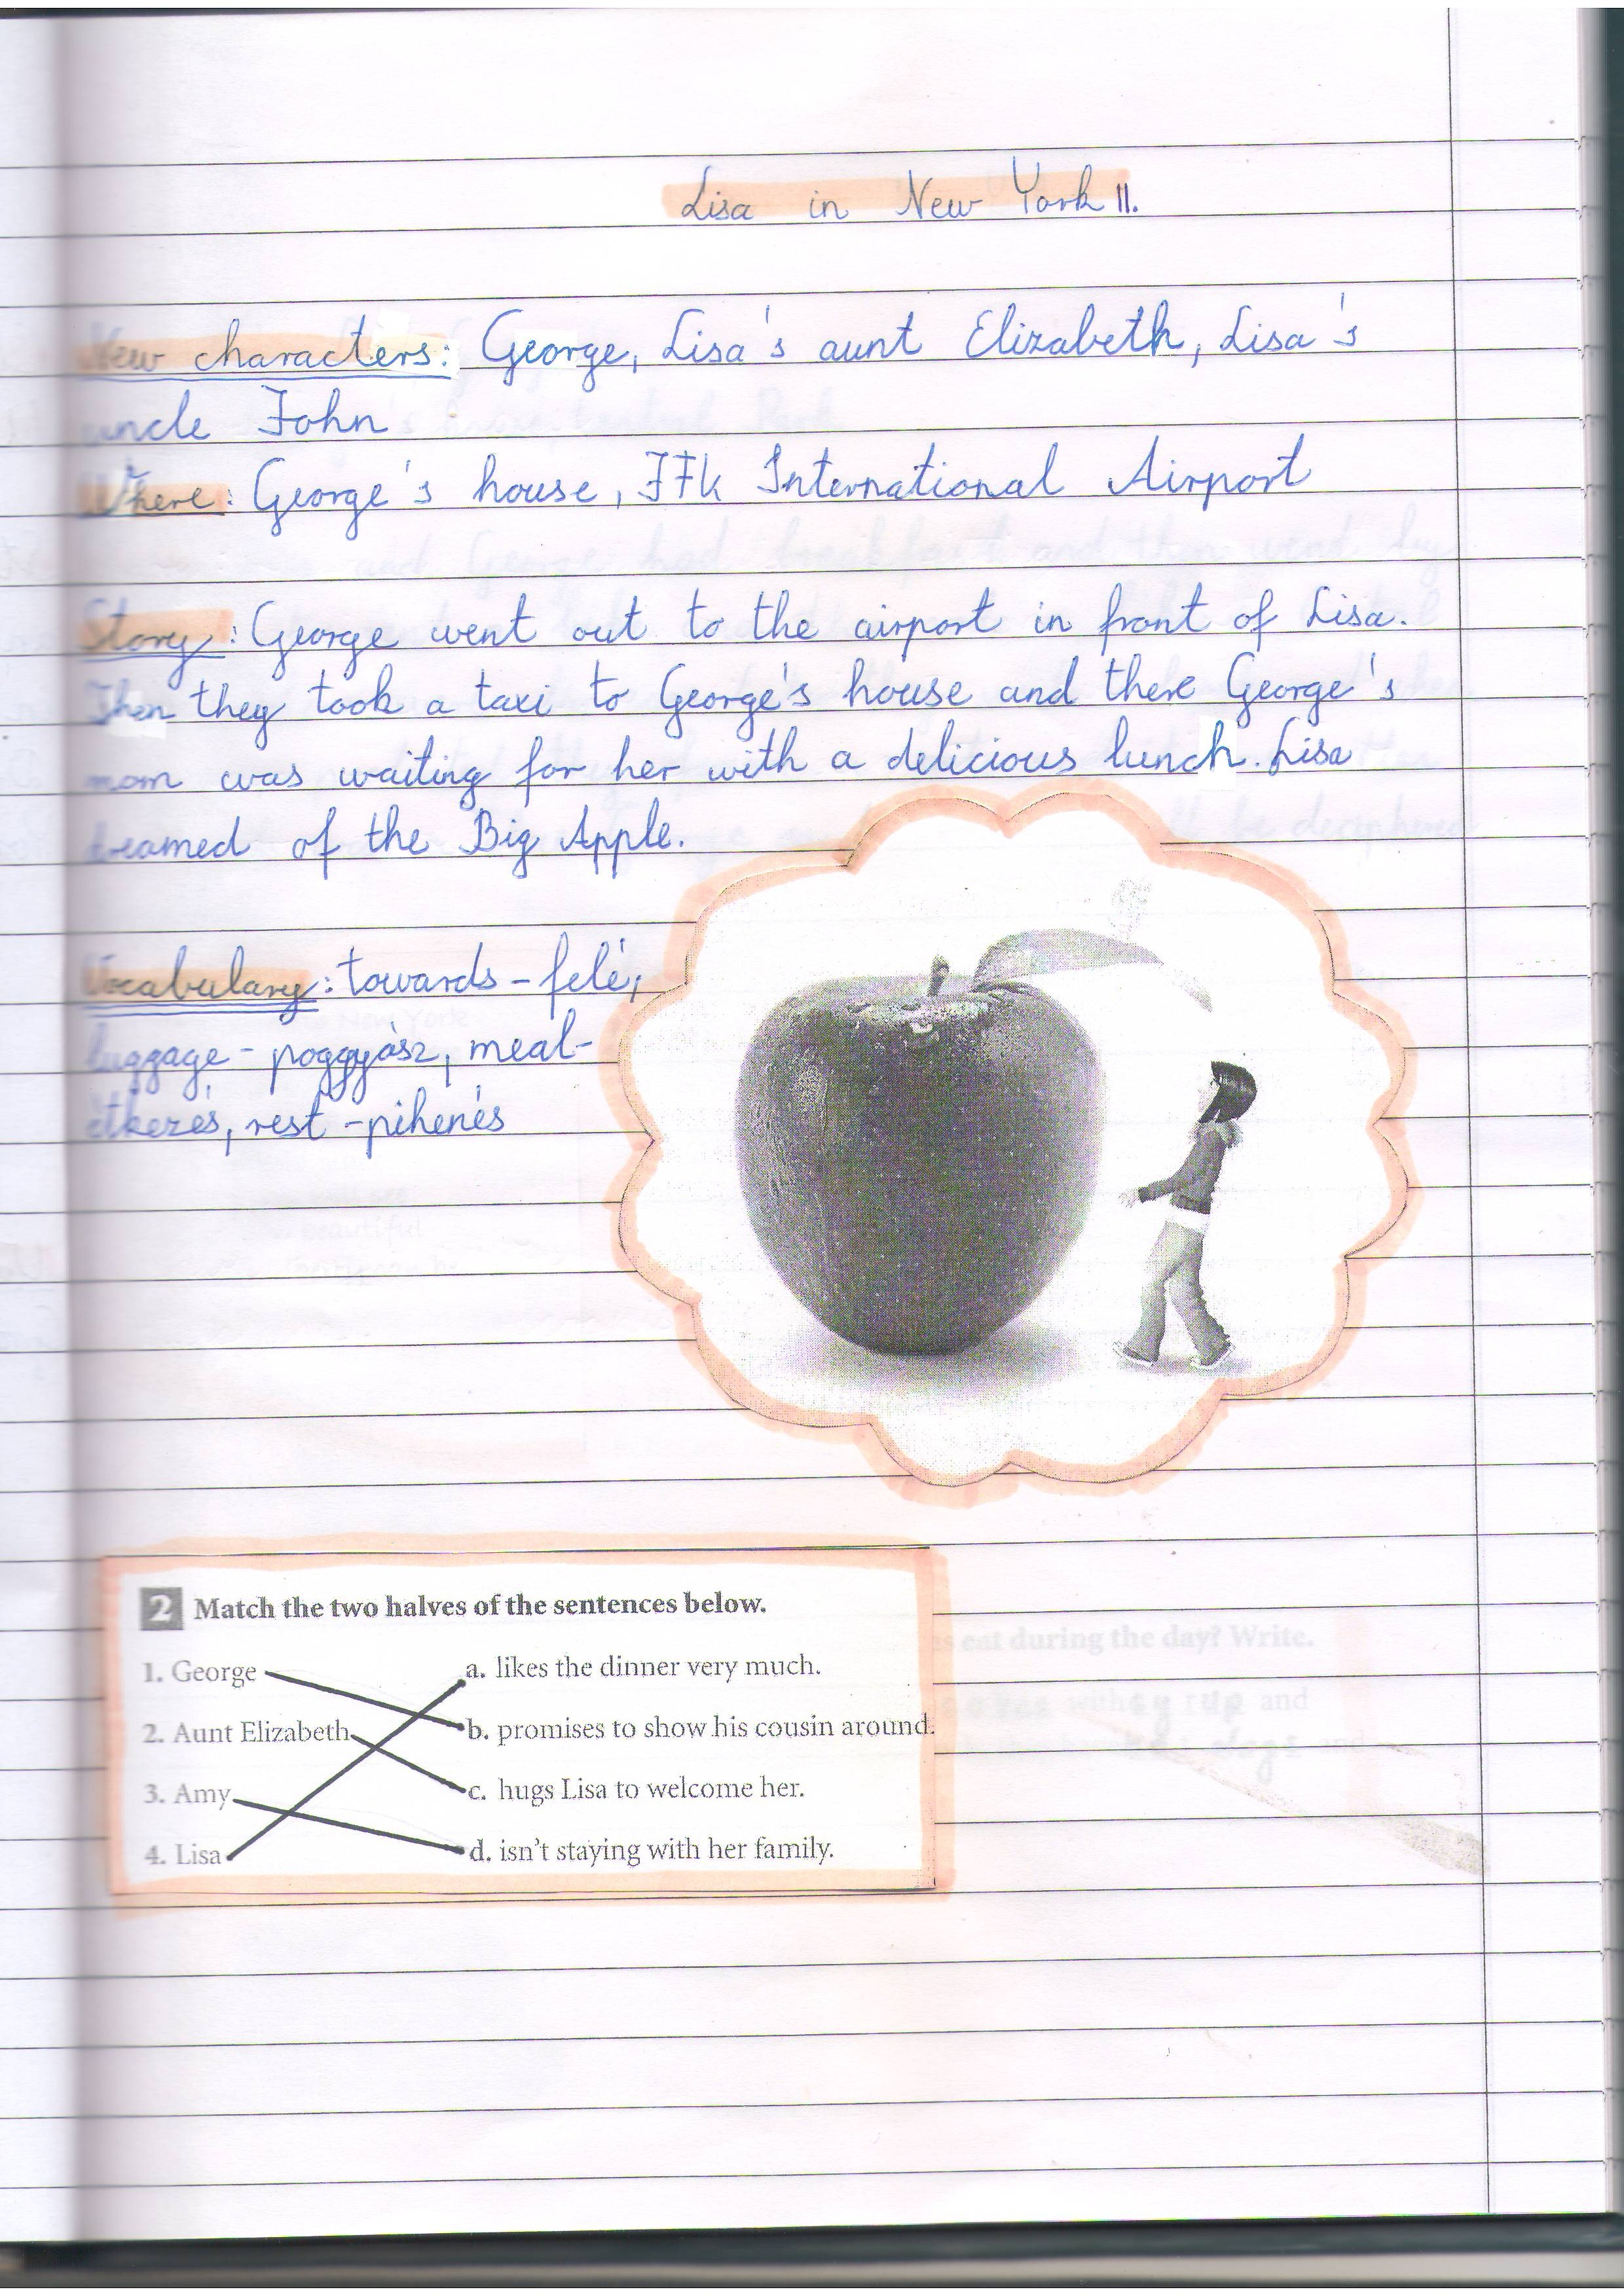 Lisa in New York II.
New characters: George, Lisa's aunt Elizabeth, Lisa's
uncle John
Where: George's house, JFk International Airport
Story: George went out to the airport in front of Lisa.
Then they took a taxi to George's house and there George's
mom was waiting for her with a delicious lunch. Lisa
dreamed of the Big Apple.
Vocabulary: towards - felé,
luggage - poggyász, meal-
étkezés, rest - pihenés
2 Match the two halves of the sentences below.
1. George
a. likes the dinner very much.
2. Aunt Elizabeth
b. promises to show his cousin around.
3. Amy
c. hugs Lisa to welcome her.
4. Lisa
d. isn't staying with her family.